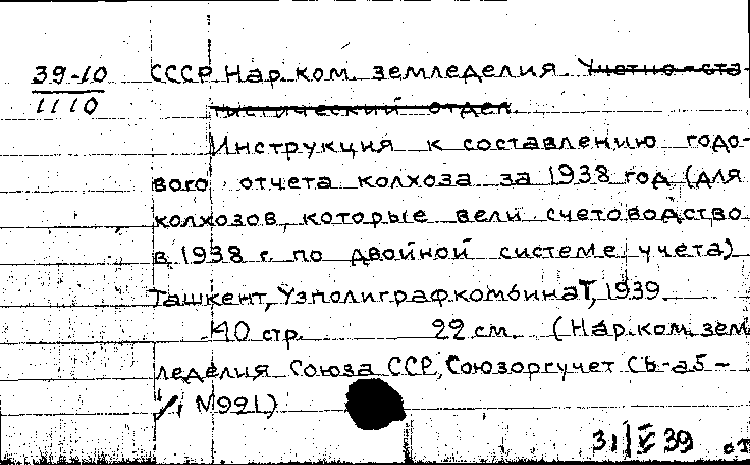 39-10 СССР Нар. ком. земледелия Учетно-ста-
1110 тистический отдел.
Инструкция к составлению годо-
вого отчета колхоза за 1938 год (для
колхозов, которые вели счетоводство
в 1938 г. по двойной системе учета)
Ташкент, Узполиграфкомбинат, 1939.
40 стр. 22 см. (Нар. ком. зем
леделия Союза ССР, Союзоргучет
N991)
31/V 39